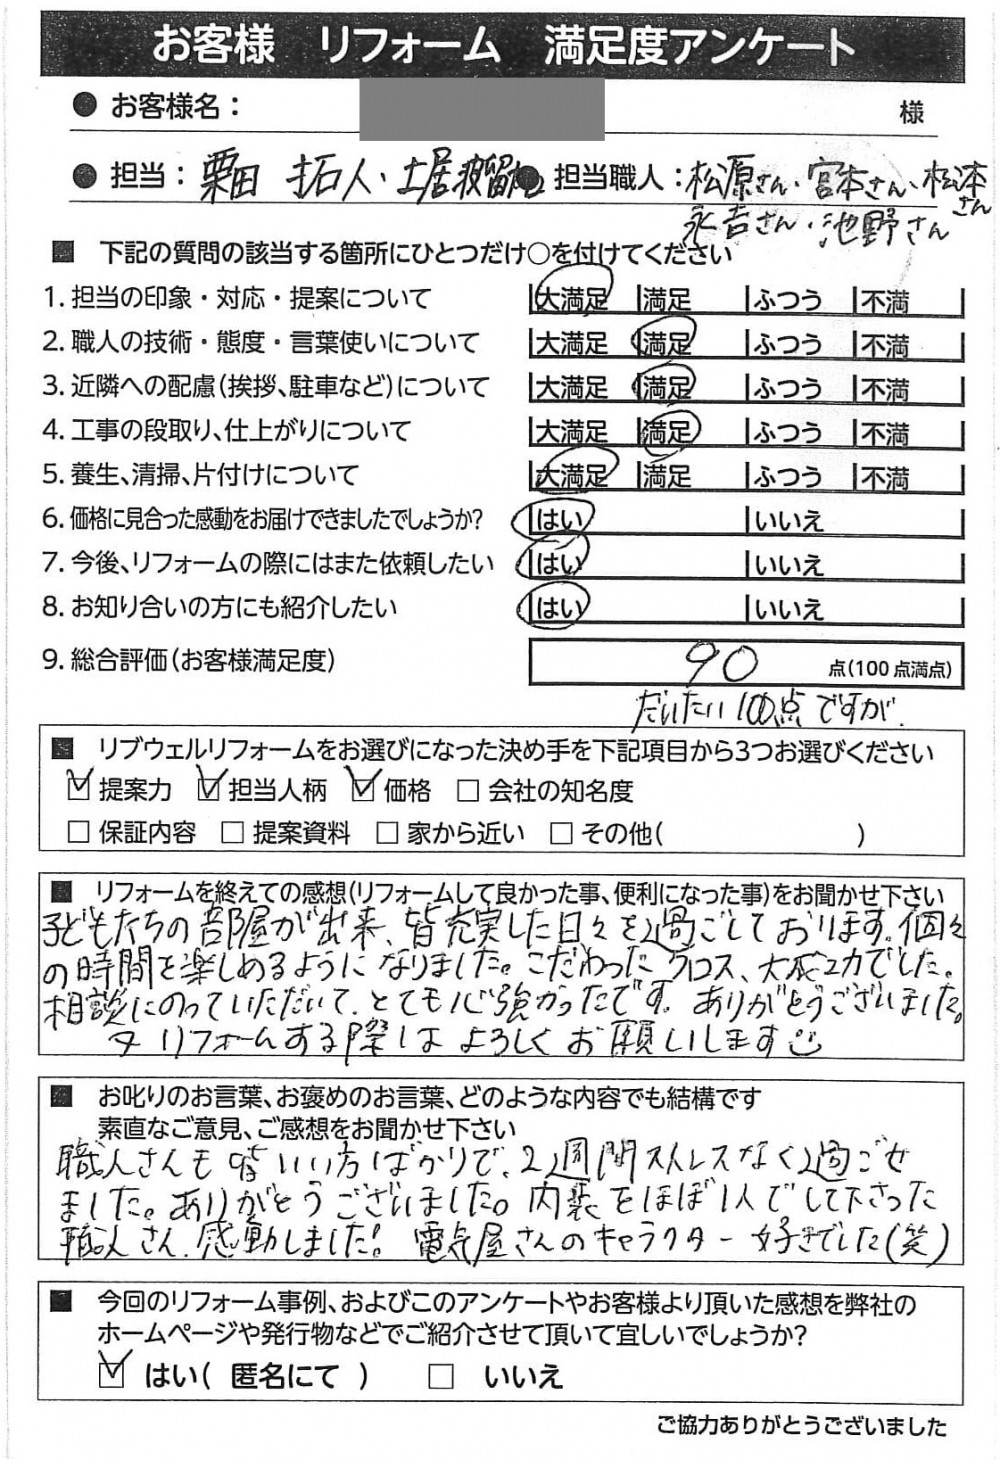 お客様 リフォーム 満足度アンケート
● お客様名： 様
● 担当：栗田 拓人・土居 ● 担当職人：松原さん・宮本さん・松本さん
永吉さん・池野さん
■ 下記の質問の該当する箇所にひとつだけ○を付けてください
1. 担当の印象・対応・提案について 大満足 満足 ふつう 不満
2. 職人の技術・態度・言葉使いについて 大満足 満足 ふつう 不満
3. 近隣への配慮(挨拶、駐車など)について 大満足 満足 ふつう 不満
4. 工事の段取り、仕上がりについて 大満足 満足 ふつう 不満
5. 養生、清掃、片付けについて 大満足 満足 ふつう 不満
6. 価格に見合った感動をお届けできましたでしょうか? はい いいえ
7. 今後、リフォームの際にはまた依頼したい はい いいえ
8. お知り合いの方にも紹介したい はい いいえ
9. 総合評価(お客様満足度) 90 点(100点満点)
だいたい100点ですが、
■ リブウェルリフォームをお選びになった決め手を下記項目から3つお選びください
☑ 提案力 ☑ 担当人柄 ☑ 価格 □ 会社の知名度
□ 保証内容 □ 提案資料 □ 家から近い □ その他( )
■ リフォームを終えての感想(リフォームして良かった事、便利になった事)をお聞かせ下さい
子どもたちの部屋が出来、皆充実した日々を過ごしております。個々
の時間を楽しめるようになりました。こだわったクロス、大成功でした。
相談にのっていただいて、とても心強かったです。ありがとうございました。
又リフォームする際はよろしくお願いします
■ お叱りのお言葉、お褒めのお言葉、どのような内容でも結構です
素直なご意見、ご感想をお聞かせ下さい
職人さんも皆いい方ばかりで、2週間ストレスなく過ごせ
ました。ありがとうございました。内装をほぼ1人でして下さった
職人さん、感動しました! 電気屋さんのキャラクター好きでした(笑)
■ 今回のリフォーム事例、およびこのアンケートやお客様より頂いた感想を弊社の
ホームページや発行物などでご紹介させて頂いて宜しいでしょうか?
☑ はい( 匿名にて ) □ いいえ
ご協力ありがとうございました